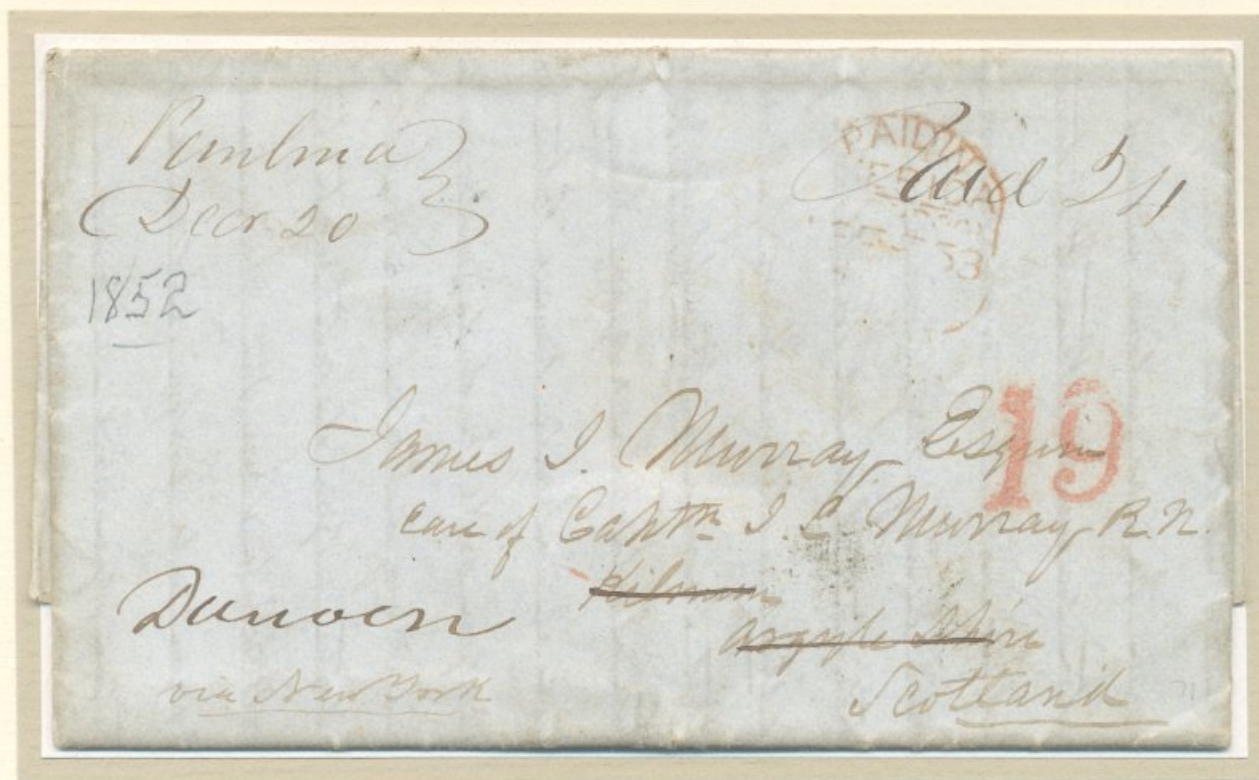 Pembina
Decr 20
1852
Paid 24
PAID
53
19
James I. Murray Esquire
care of Captn I. C. Murray, R.N.
Kilmun
Argyle Shire
Scotland
Dunoon
via New York